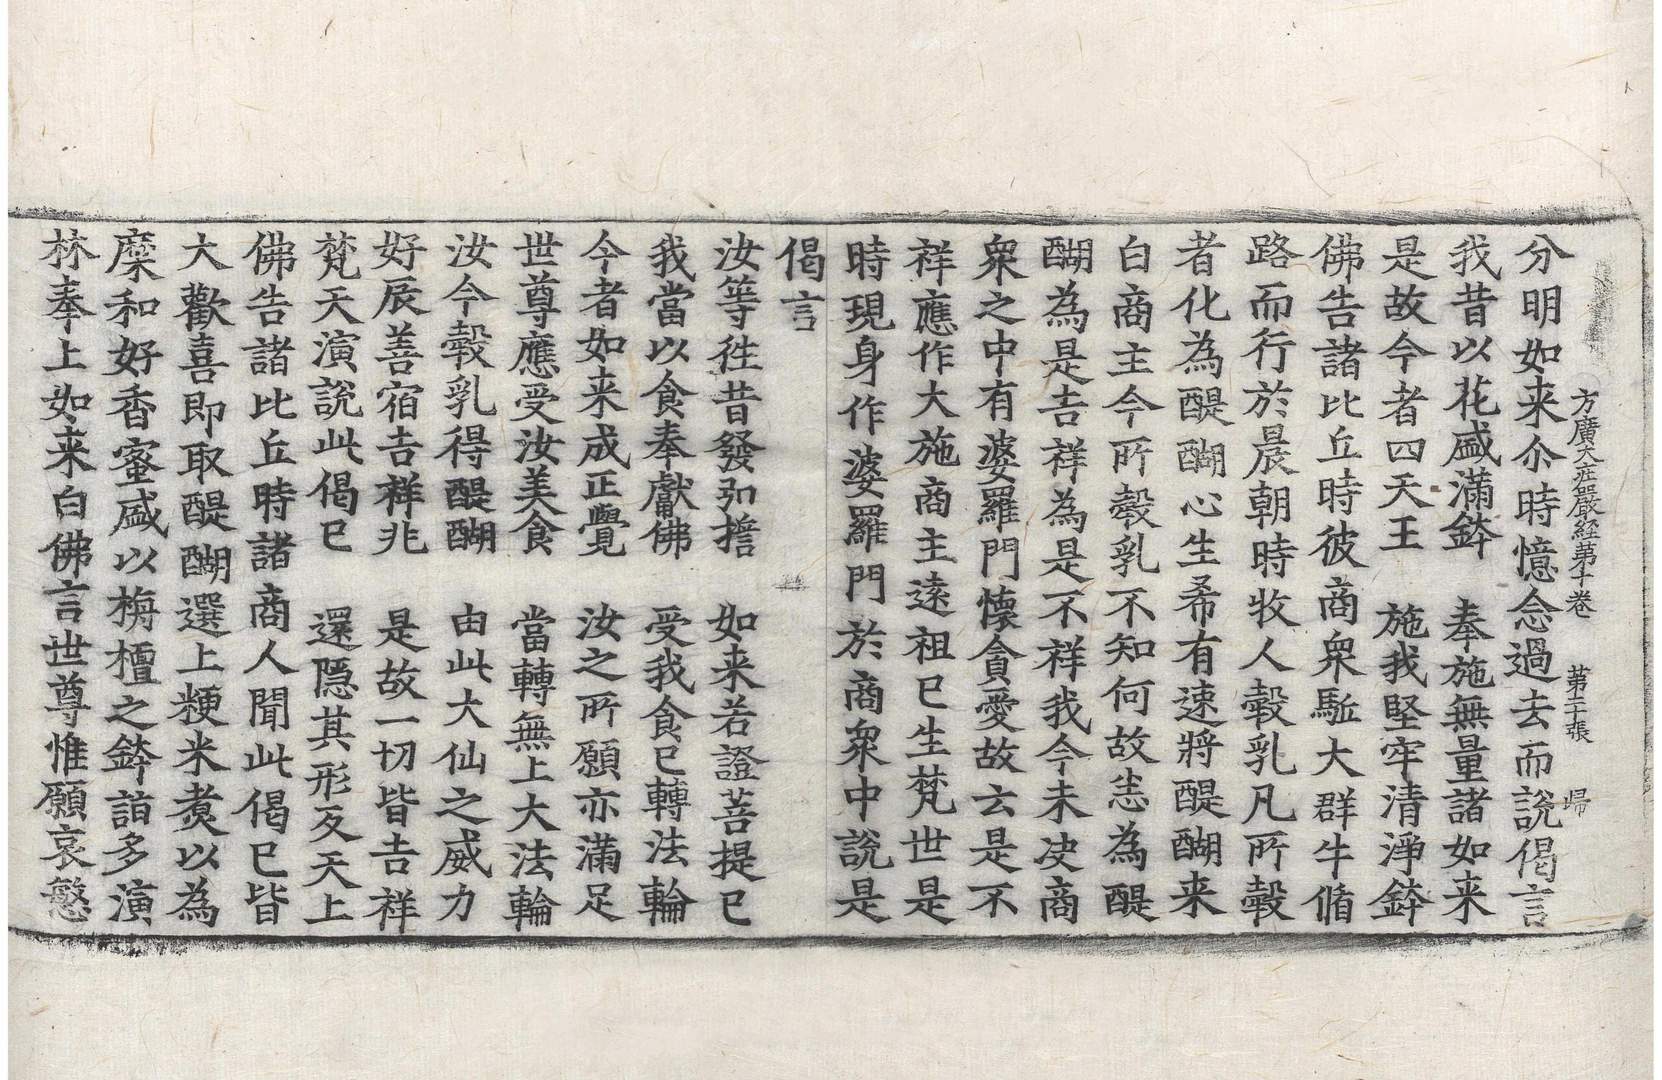 方廣大莊嚴經第十卷 第二十張 歸
分明如来尒時憶念過去而說偈言
我昔以花盛滿鉢 奉施無量諸如来
是故今者四天王 施我堅牢清淨鉢
佛告諸比丘時彼商衆駈大群牛脩
路而行於晨朝時牧人𣫍乳凡所𣫍
者化為醍醐心生希有速將醍醐来
白商主今所𣫍乳不知何故恙為醍
醐為是吉祥為是不祥我今未决商
衆之中有婆羅門懷貪愛故云是不
祥應作大施商主遠祖已生梵世是
時現身作婆羅門於商衆中說是
偈言
汝等徃昔發弘擔 如来若證菩提已
我當以食奉獻佛 受我食已轉法輪
今者如来成正覺 汝之所願亦滿足
世尊應受汝美食 當轉無上大法輪
汝今𣫍乳得醍醐 由此大仙之威力
好辰善宿吉祥兆 是故一切皆吉祥
梵天演說此偈已 還隱其形反天上
佛告諸比丘時諸商人聞此偈已皆
大歡喜即取醍醐選上粳米煑以為
糜和好香蜜盛以栴檀之鉢詣多演
林奉上如来白佛言世尊惟願哀愍